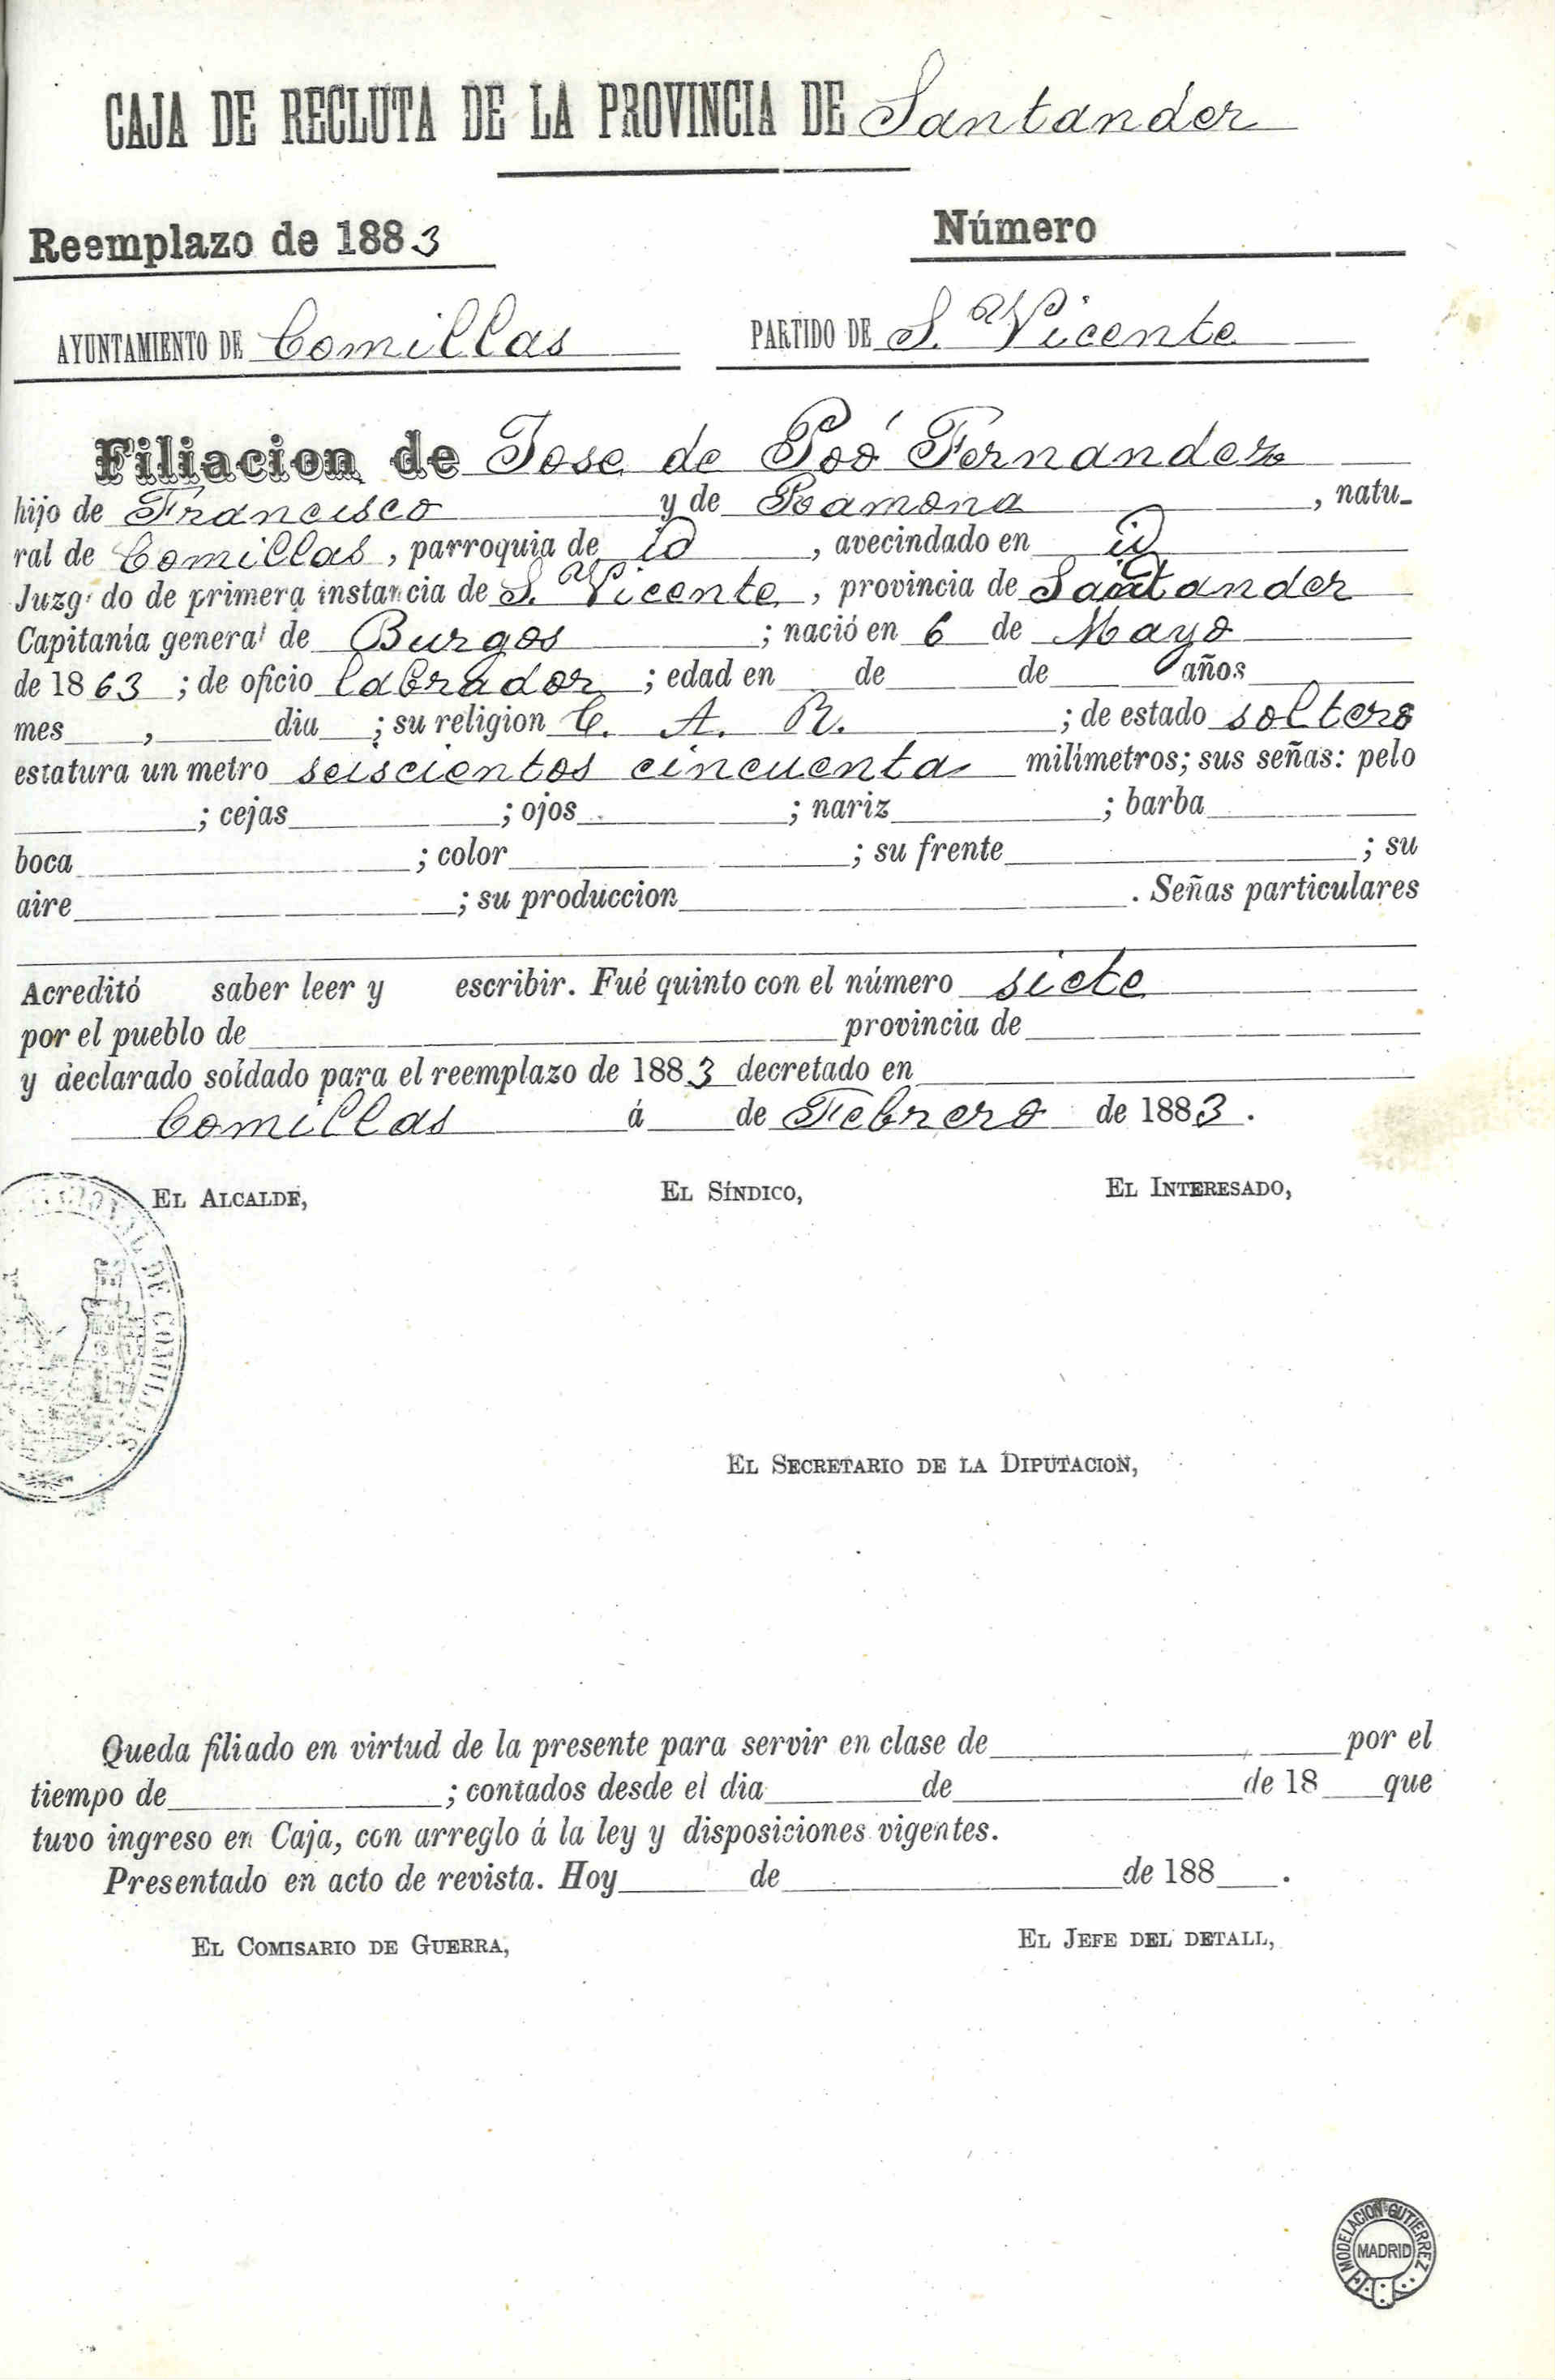 CAJA DE RECLUTA DE LA PROVINCIA DE Santander
Reemplazo de 1883 Número
AYUNTAMIENTO DE Comillas PARTIDO DE S. Vicente
Filiacion de Jose de Poó Fernandez
hijo de Francisco y de Ramona, natu-
ral de Comillas, parroquia de id, avecindado en id
Juzgado de primera instancia de S. Vicente, provincia de Santander
Capitanía general de Burgos; nació en 6 de Mayo
de 1863; de oficio labrador; edad en de de años
mes, dia; su religion C. A. R.; de estado soltero
estatura un metro seiscientos cincuenta milímetros; sus señas: pelo
; cejas ; ojos ; nariz ; barba
boca ; color ; su frente ; su
aire ; su produccion . Señas particulares
Acreditó saber leer y escribir. Fué quinto con el número siete
por el pueblo de provincia de
y declarado soldado para el reemplazo de 1883 decretado en
Comillas á de Febrero de 1883.
EL ALCALDE, EL SÍNDICO, EL INTERESADO,
DE COMILLAS
EL SECRETARIO DE LA DIPUTACION,
Queda filiado en virtud de la presente para servir en clase de por el
tiempo de ; contados desde el dia de de 18 que
tuvo ingreso en Caja, con arreglo á la ley y disposiciones vigentes.
Presentado en acto de revista. Hoy de de 188 .
EL COMISARIO DE GUERRA, EL JEFE DEL DETALL,
MODELACION GUTIERREZ
MADRID